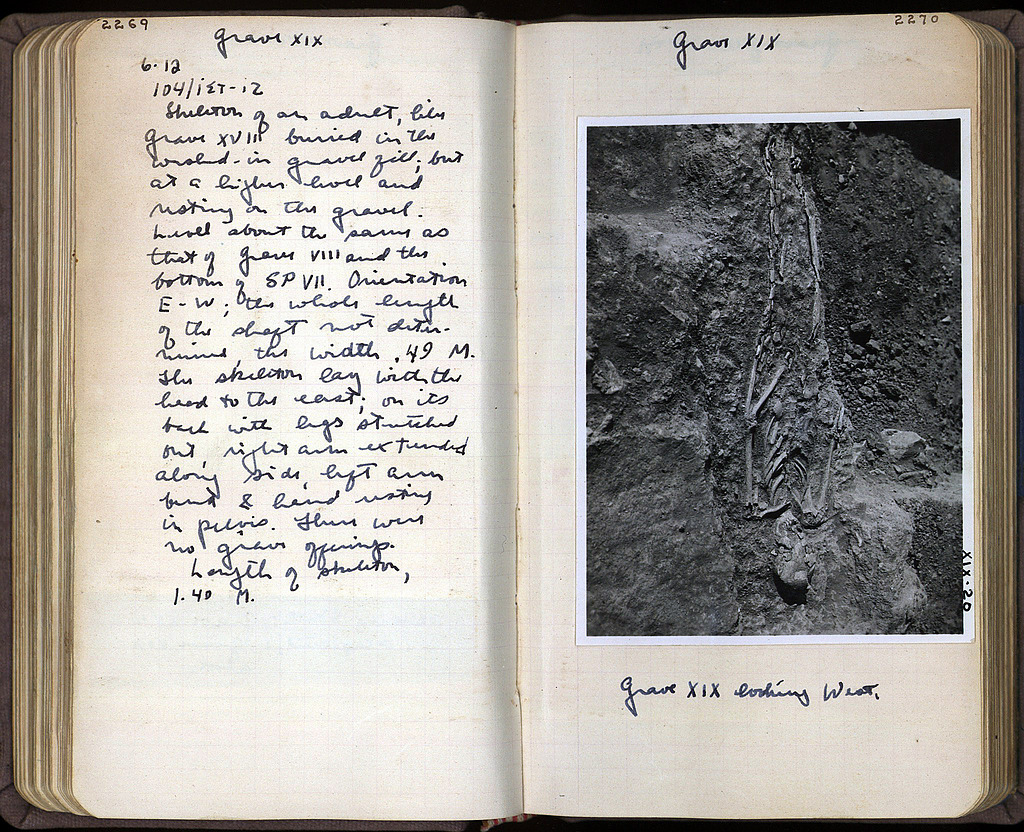 2269
Grave XIX
6·12
104/ΙΣΤ-ΙΖ
Skeleton of an adult, like
Grave XVIII buried in the
washed-in gravel fill, but
at a higher level and
resting on the gravel.
Level about the same as
that of Grave VIII and the
bottom of SP VII. Orientation
E-W; the whole length
of the shaft not deter-
mined, the width, .49 M.
The skeleton lay with the
head to the east; on its
back with legs stretched
out, right arm extended
along side, left arm
bent & hand resting
in pelvis. There were
no grave offerings.
Length of skeleton,
1.40 M.
2270
Grave XIX
XIX-20
Grave XIX looking West.